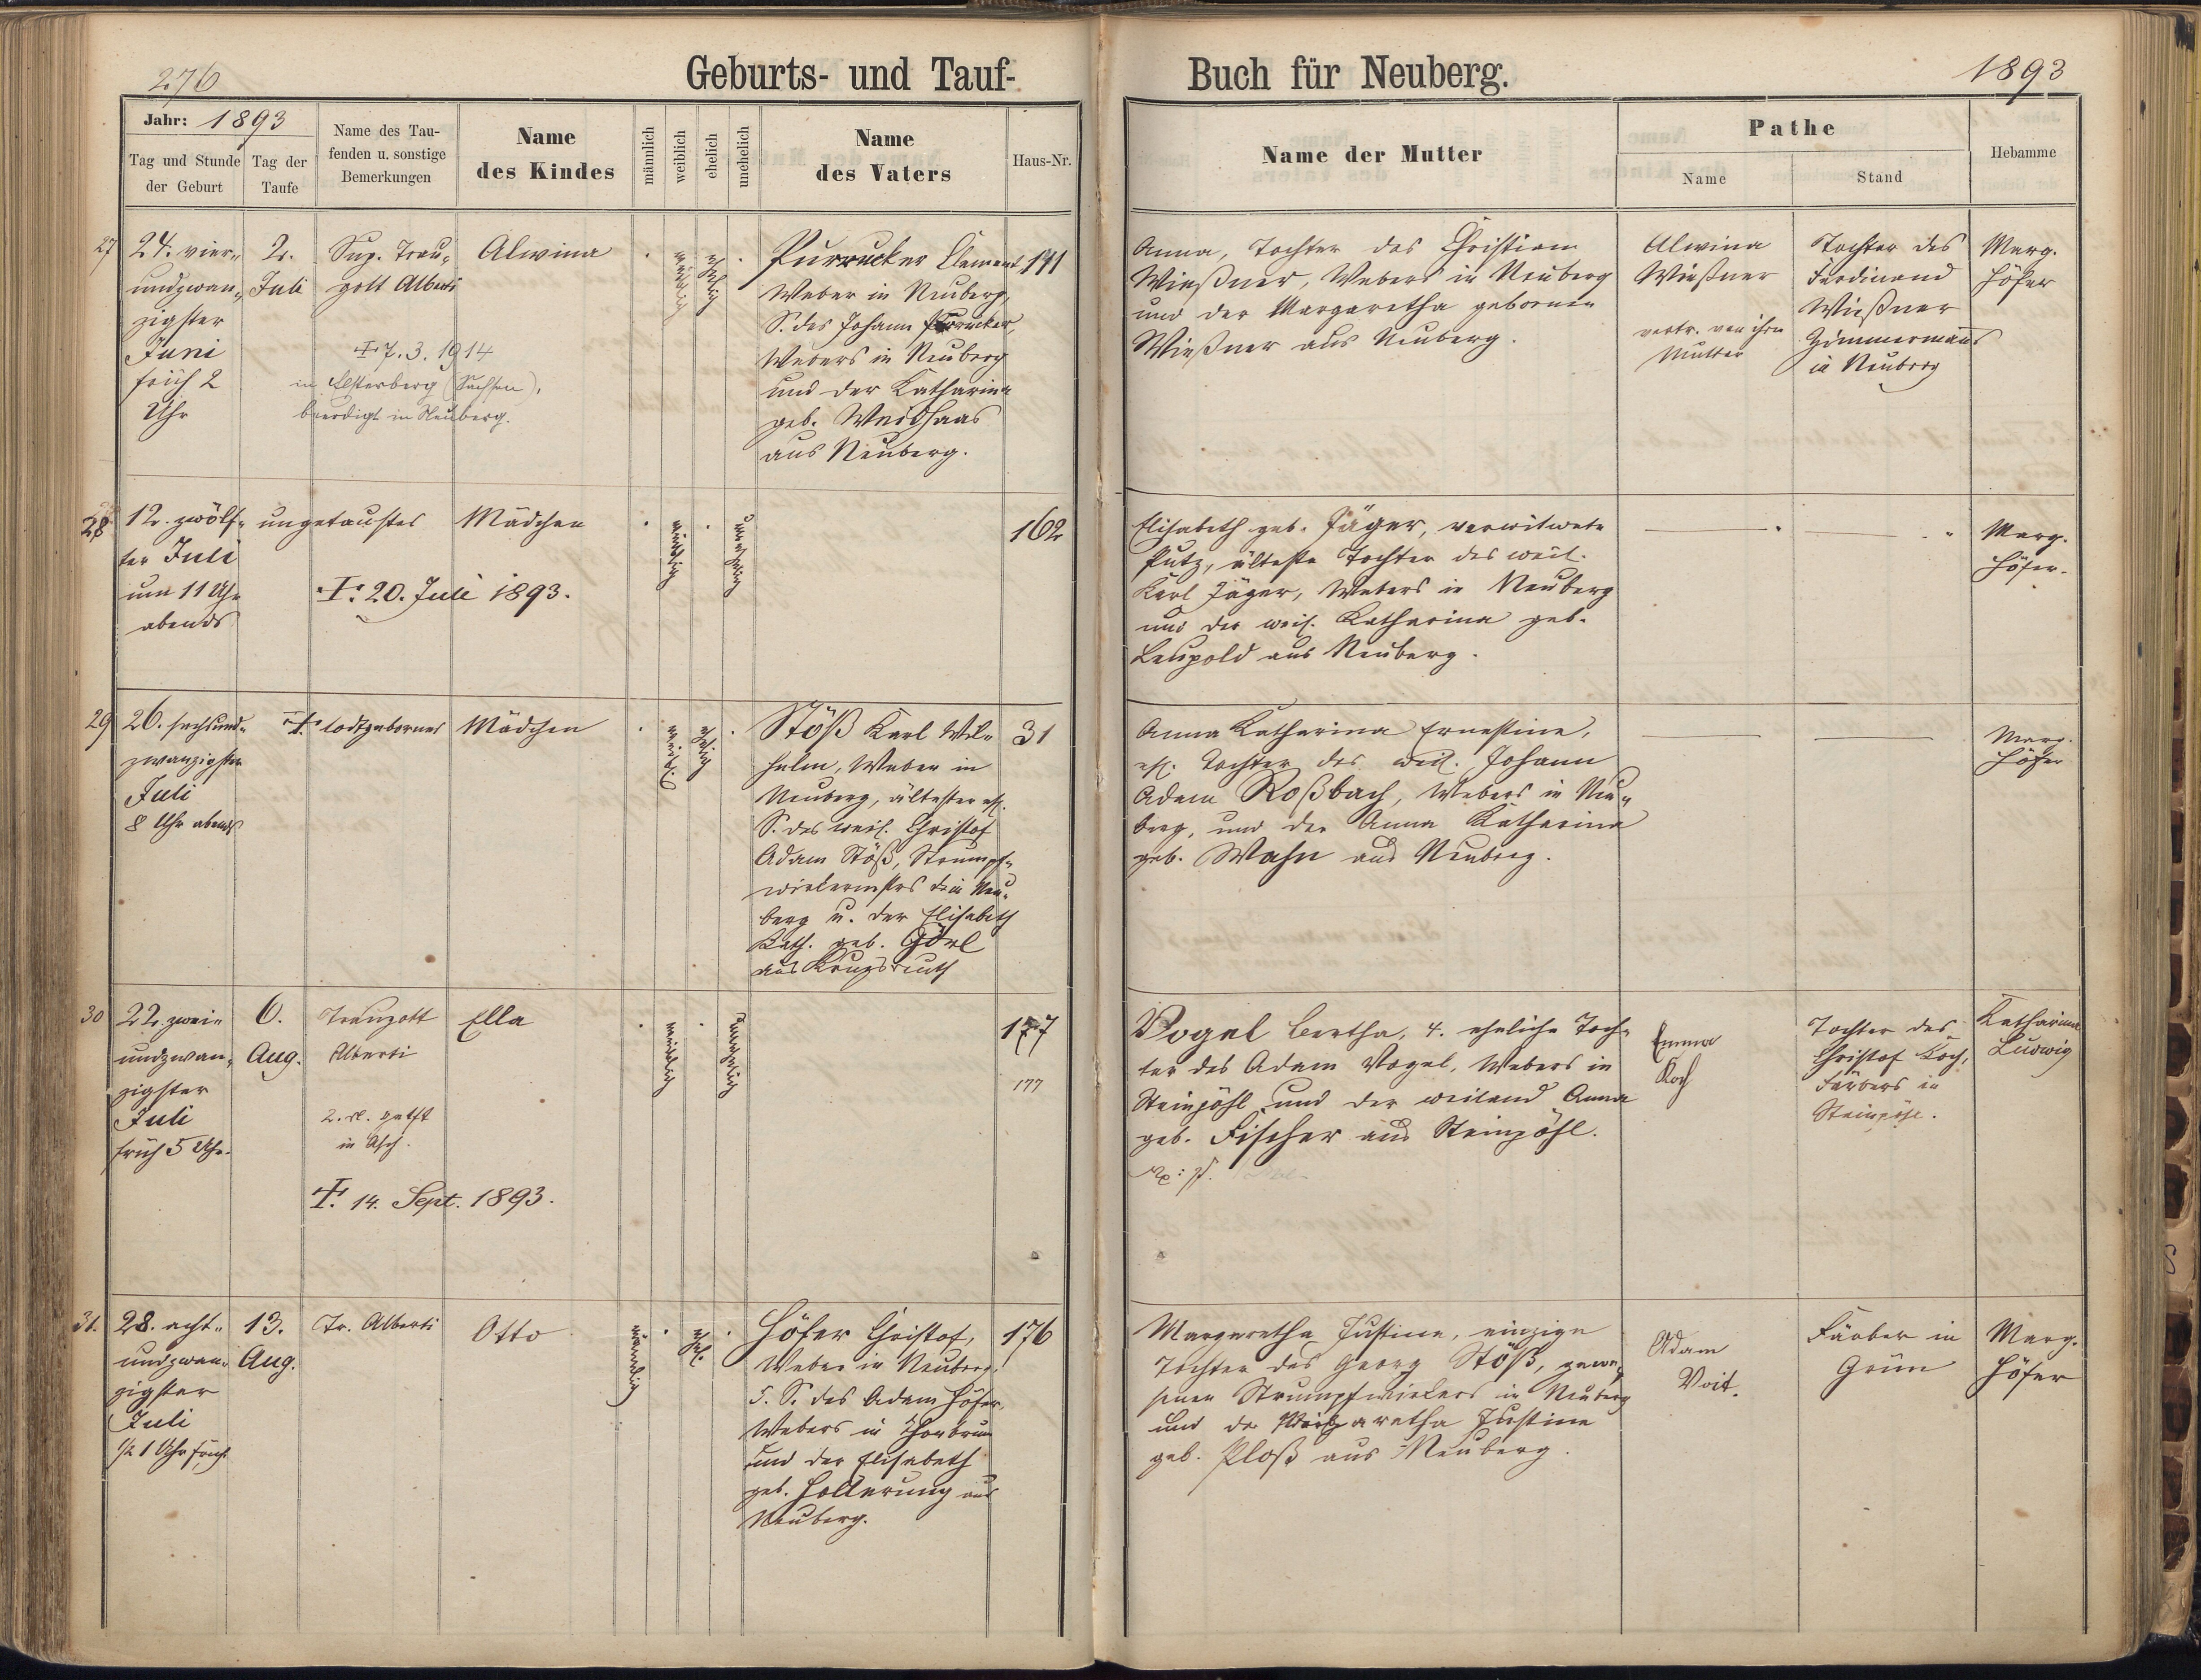 276
Geburts- und Tauf-
Buch für Neuberg.
1893
Jahr: 1893
Tag und Stunde
der Geburt
Tag der
Taufe
Name des Tau-
fenden u. sonstige
Bemerkungen
Name
des Kindes
männlich
weiblich
ehelich
unehelich
Name
des Vaters
Haus-Nr.
Name der Mutter
Pathe
Name
Stand
Hebamme
27
24. vier-
undzwan-
zigster
Juni
früh 2
Uhr
2.
Juli
Sup. Trau-
gott Alberti
† 7. 3. 1914
in Elsterberg (Sachsen),
beerdigt in Neuberg.
Alwina
weiblich
ehelich
Purrucker Clement
Weber in Neuberg,
S. des Johann Purrucker,
Webers in Neuberg
und der Katharina
geb. Weidhaas
aus Neuberg.
141
Anna, Tochter des Christian
Wießner, Webers in Neuberg
und der Margaretha gebornen
Wießner aus Neuberg.
Alwina
Wießner
vertr. von ihrer
Mutter
Tochter des
Ferdinand
Wießner
Zimmermanns
in Neuberg
Marg.
Höfer
28
12. zwölf-
ter Juli
um 11 Uhr
abends
ungetauftes
† 20. Juli 1893.
Mädchen
weiblich
unehelich
162
Elisabeth geb. Jäger, verwitwete
Putz, älteste Tochter des weil.
Karl Jäger, Webers in Neuberg
und der weil. Katharina geb.
Leupold aus Neuberg.
Marg.
Höfer.
29
26. sechsund-
zwanzigster
Juli
8 Uhr abends
† todtgebornes
Mädchen
weibl.
ehelich
Stöß Karl Wil-
helm, Weber in
Neuberg, ältester ehl.
S. des weil. Christof
Adam Stöß, Strumpf-
wirkermstrs in Neu-
berg u. der Elisabeth
Kath. geb. Görl
aus Krugsreuth
31
Anna Katharina Ernestine,
ehl. Tochter des weil. Johann
Adam Roßbach, Webers in Neu-
berg, und der Anna Katharina
geb. Wahn aus Neuberg.
Marg.
Höfer
30
22. zwei-
undzwan-
zigster
Juli
früh 5 Uhr.
6.
Aug.
Traugott
Alberti
in Asch.
† 14. Sept. 1893.
Ella
weiblich
unehelich
177
177
Vogel Bertha, 4. eheliche Toch-
ter des Adam Vogel, Webers in
Steinpöhl und der weiland Anna
geb. Fischer aus Steinpöhl.
Emma
Koch
Tochter des
Christof Koch,
Färbers in
Steinpöhl.
Katharina
Ludwig
31.
28. acht-
undzwan-
zigster
Juli
1/2 1 Uhr früh
13.
Aug.
Tr. Alberti
Otto
männlich
ehel.
Höfer Christof,
Weber in Neuberg,
5. S. des Adam Höfer,
Webers in Thonbrunn
und der Elisabeth
geb. Hollerung aus
Neuberg.
176
Margaretha Justine, einzige
Tochter des Georg Stöß, gewe-
senen Strumpfwirkers in Neuberg
und der Margaretha Justine
geb. Ploß aus Neuberg.
Adam
Voit.
Färber in
Grün
Marg.
Höfer